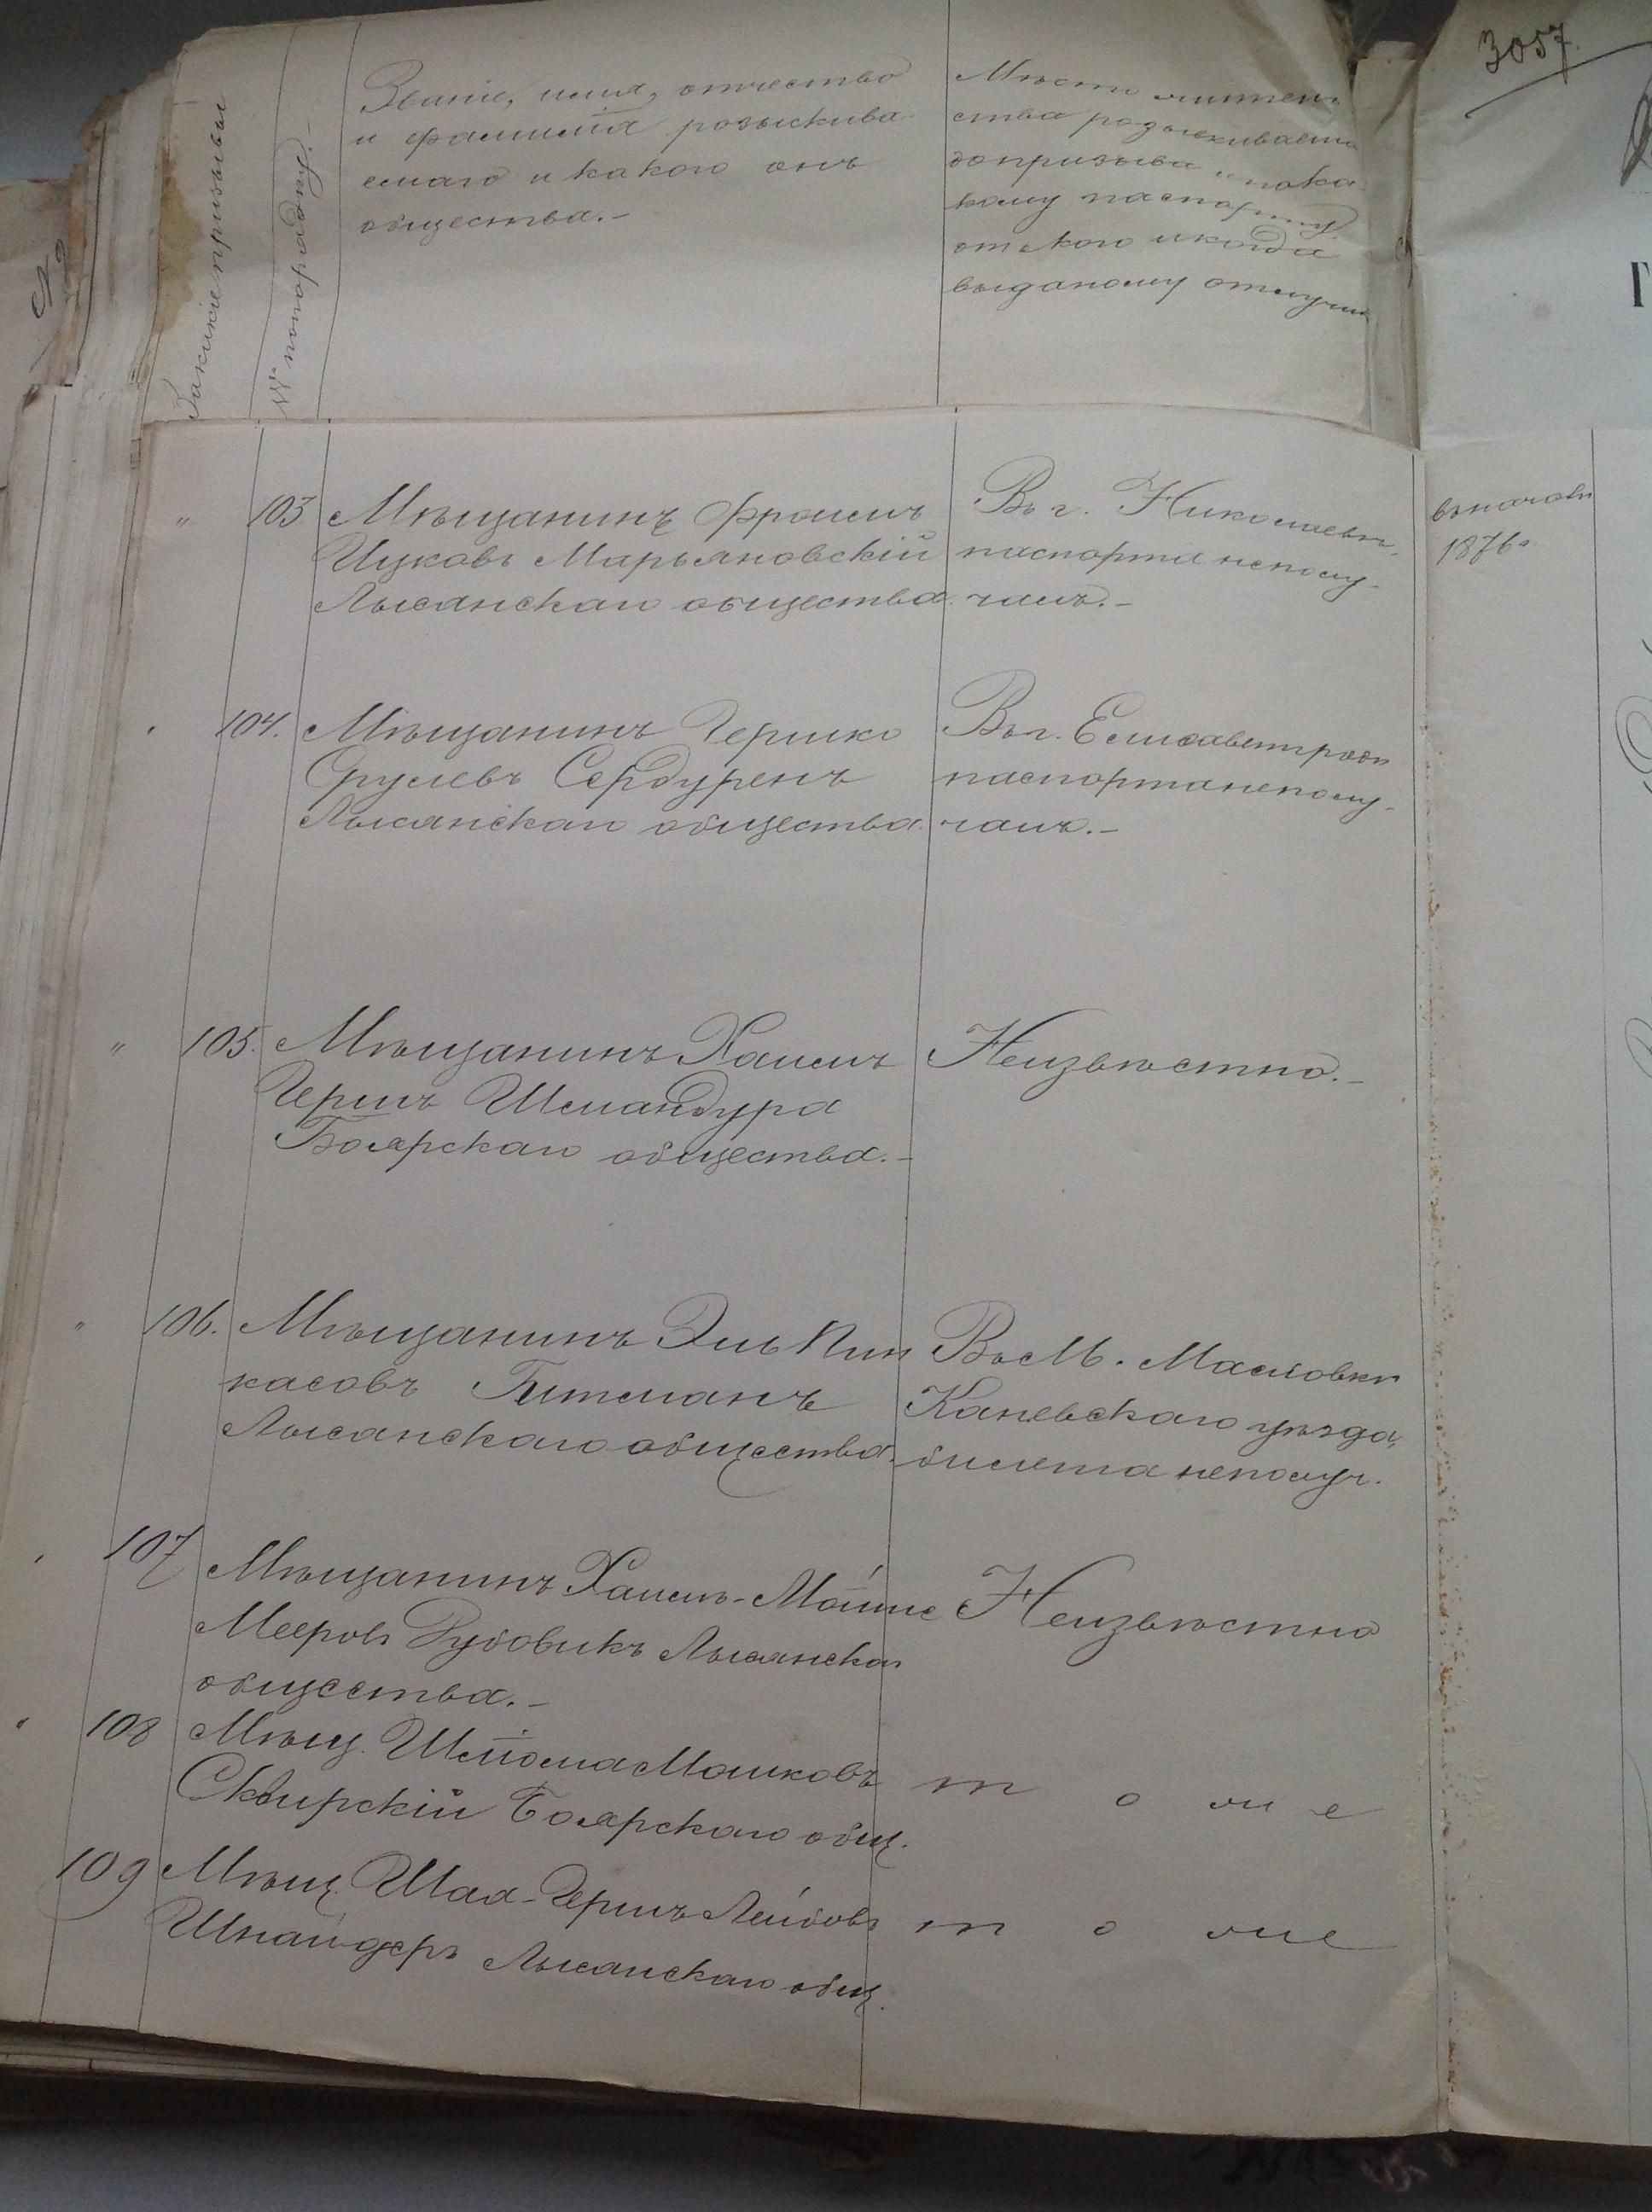 3057.
За какіе призывы
№ по порядку.-
Званіе, имя, отчество
и фамилія розыскива
емаго и какого онъ
общества.-
Мѣсто житель
ства розыскиваема
до призыва и по ка
кому паспорту
отъ кого и когда
выданому отлучил
" 103 Мѣщанинъ Фроимъ
Ицковъ Марьяновскій
Лысянскаго общества.
Въ г. Николаевѣ,
паспорта неполу-
чалъ.-
въ началѣ
1876 г.
104. Мѣщанинъ Гершко
Срулевъ Сердуренъ
Лысянскаго общества.
Въ г. Елисаветградѣ
паспорта неполу-
чалъ.-
" 105. Мѣщанинъ Хаимъ
Гершъ Шмандура
Боярскаго общества.-
Неизвѣстно.-
" 106. Мѣщанинъ Эль Пин
касовъ Гитманъ
Лысянскаго общества.
Въ М. Масловкѣ
Каневскаго уѣзда,
билета неполуч.
107 Мѣщанинъ Хаимъ-Мойше
Мееровъ Рудовикъ Лысянскаго
общества.-
Неизвѣстно
" 108 Мѣщ. Шлйома Мошковъ
Сквирскій Боярскаго общ.
тоже
109 Мѣщ. Шая-Гершъ Лейбовъ
Шнайдеръ Лысянскаго общ.
тоже